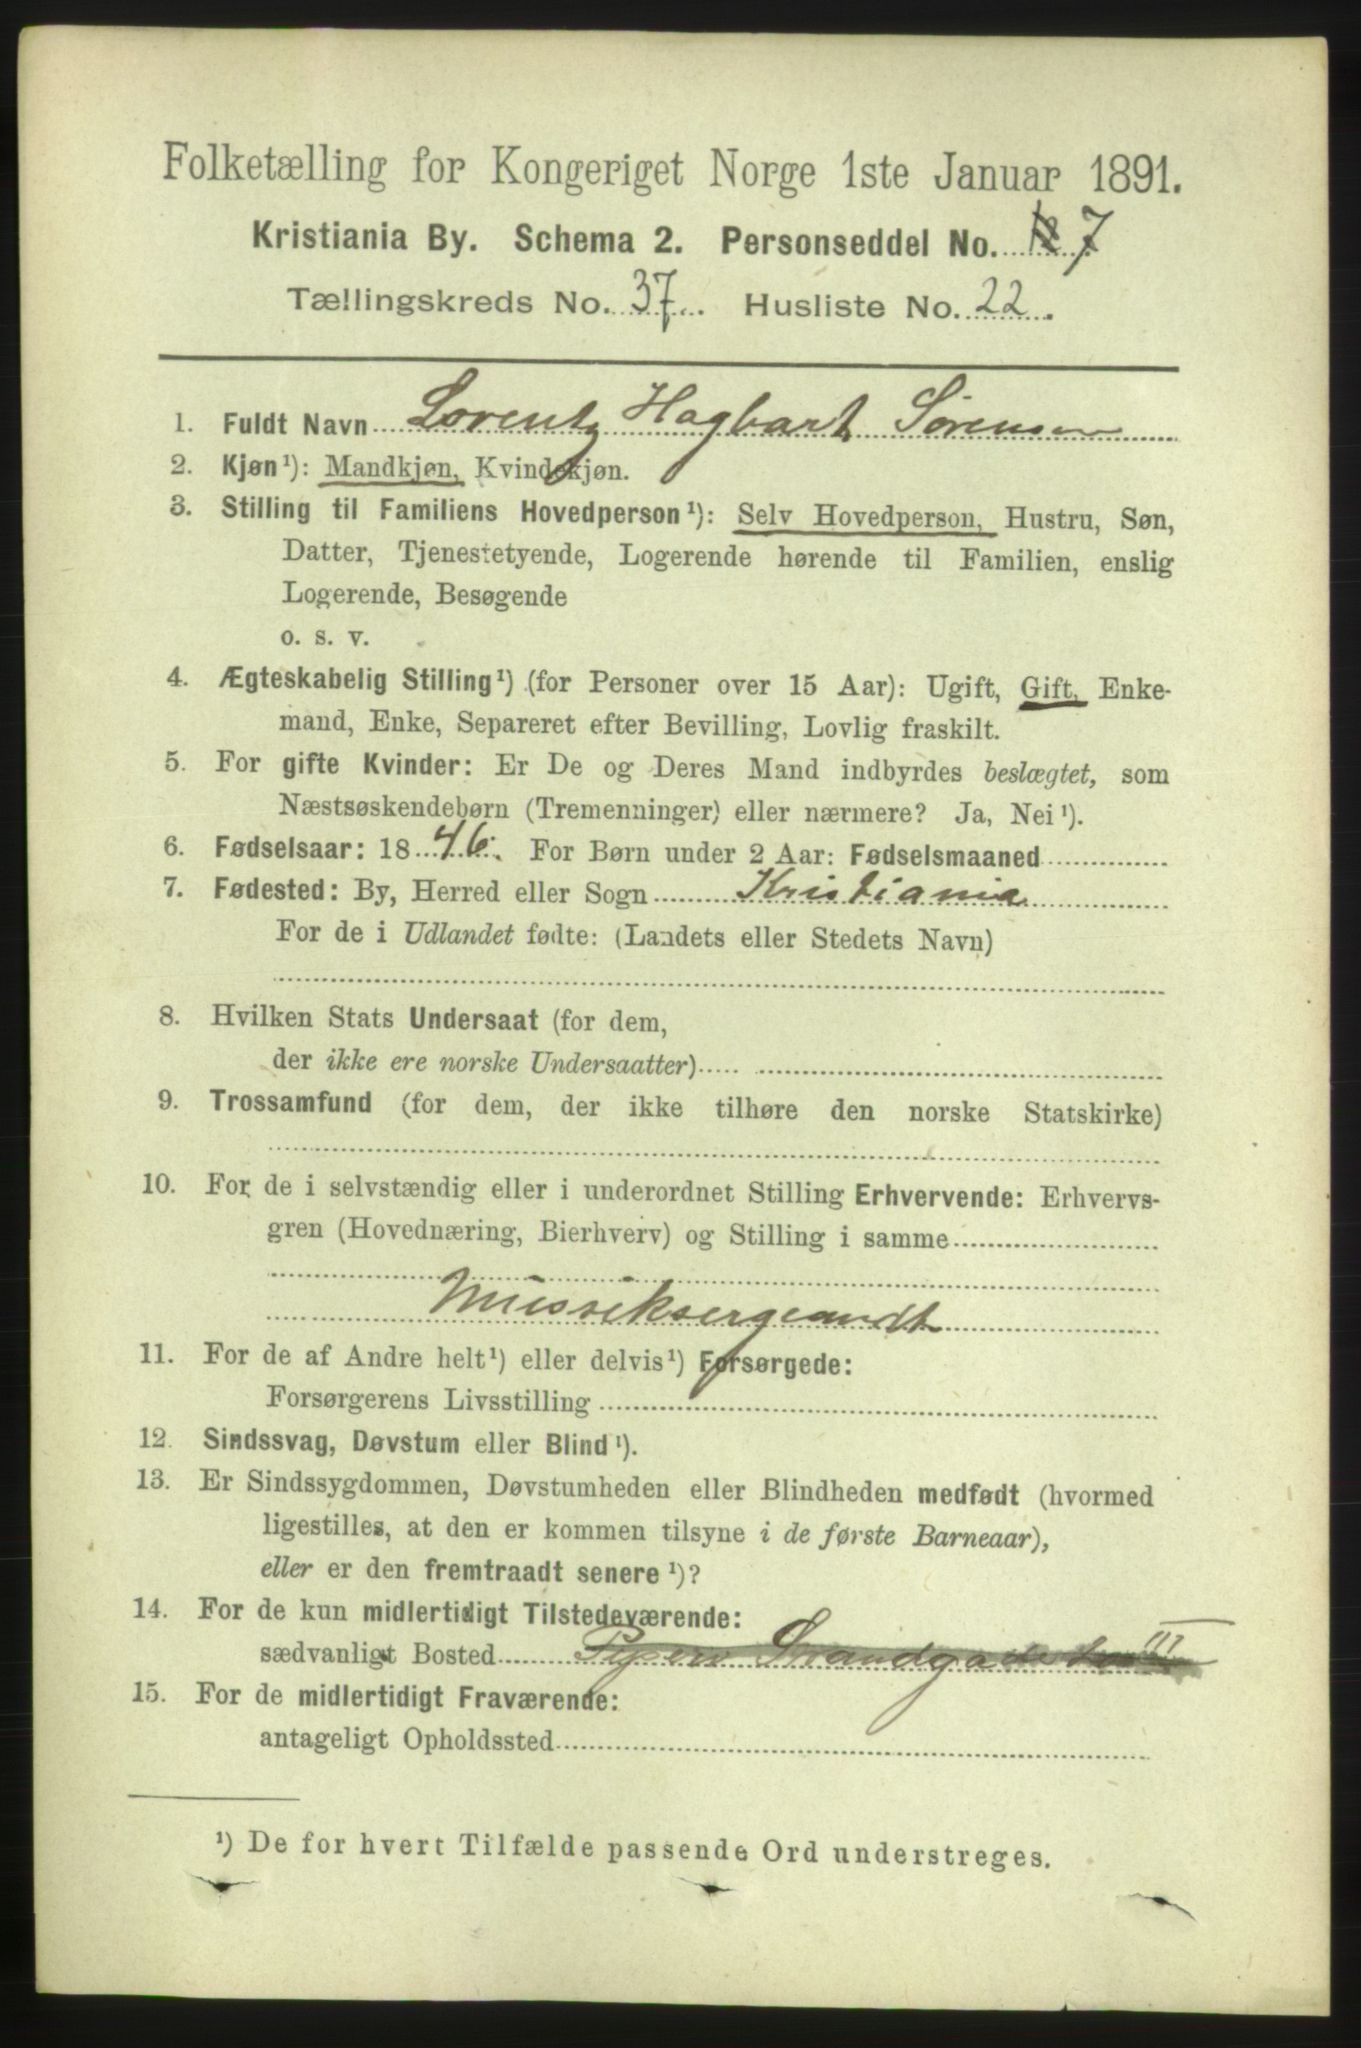 Folketælling for Kongeriget Norge 1ste Januar 1891.
Kristiania By. Schema 2. Personseddel No. 7
Tællingskreds No. 37. Husliste No. 22.
1. Fuldt Navn Lorentz Hagbart Sörensen
2. Kjøn¹): Mandkjøn, Kvindekjøn.
3. Stilling til Familiens Hovedperson¹): Selv Hovedperson, Hustru, Søn,
Datter, Tjenestetyende, Logerende hørende til Familien, enslig
Logerende, Besøgende
o. s. v.
4. Ægteskabelig Stilling¹) (for Personer over 15 Aar): Ugift, Gift, Enke-
mand, Enke, Separeret efter Bevilling, Lovlig fraskilt.
5. For gifte Kvinder: Er De og Deres Mand indbyrdes beslægtet, som
Næstsøskendebørn (Tremenninger) eller nærmere? Ja, Nei¹).
6. Fødselsaar: 1846. For Børn under 2 Aar: Fødselsmaaned
7. Fødested: By, Herred eller Sogn Kristiania
For de i Udlandet fødte: (Landets eller Stedets Navn)
8. Hvilken Stats Undersaat (for dem,
der ikke ere norske Undersaatter)
9. Trossamfund (for dem, der ikke tilhøre den norske Statskirke)
10. For de i selvstændig eller i underordnet Stilling Erhvervende: Erhvervs-
gren (Hovednæring, Bierhverv) og Stilling i samme
Mussiksergeandt
11. For de af Andre helt¹) eller delvis¹) Forsørgede:
Forsørgerens Livsstilling
12. Sindssvag, Døvstum eller Blind¹).
13. Er Sindssygdommen, Døvstumheden eller Blindheden medfødt (hvormed
ligestilles, at den er kommen tilsyne i de første Barneaar),
eller er den fremtraadt senere¹)?
14. For de kun midlertidigt Tilstedeværende:
sædvanligt Bosted
15. For de midlertidigt Fraværende:
antageligt Opholdssted
¹) De for hvert Tilfælde passende Ord understreges.